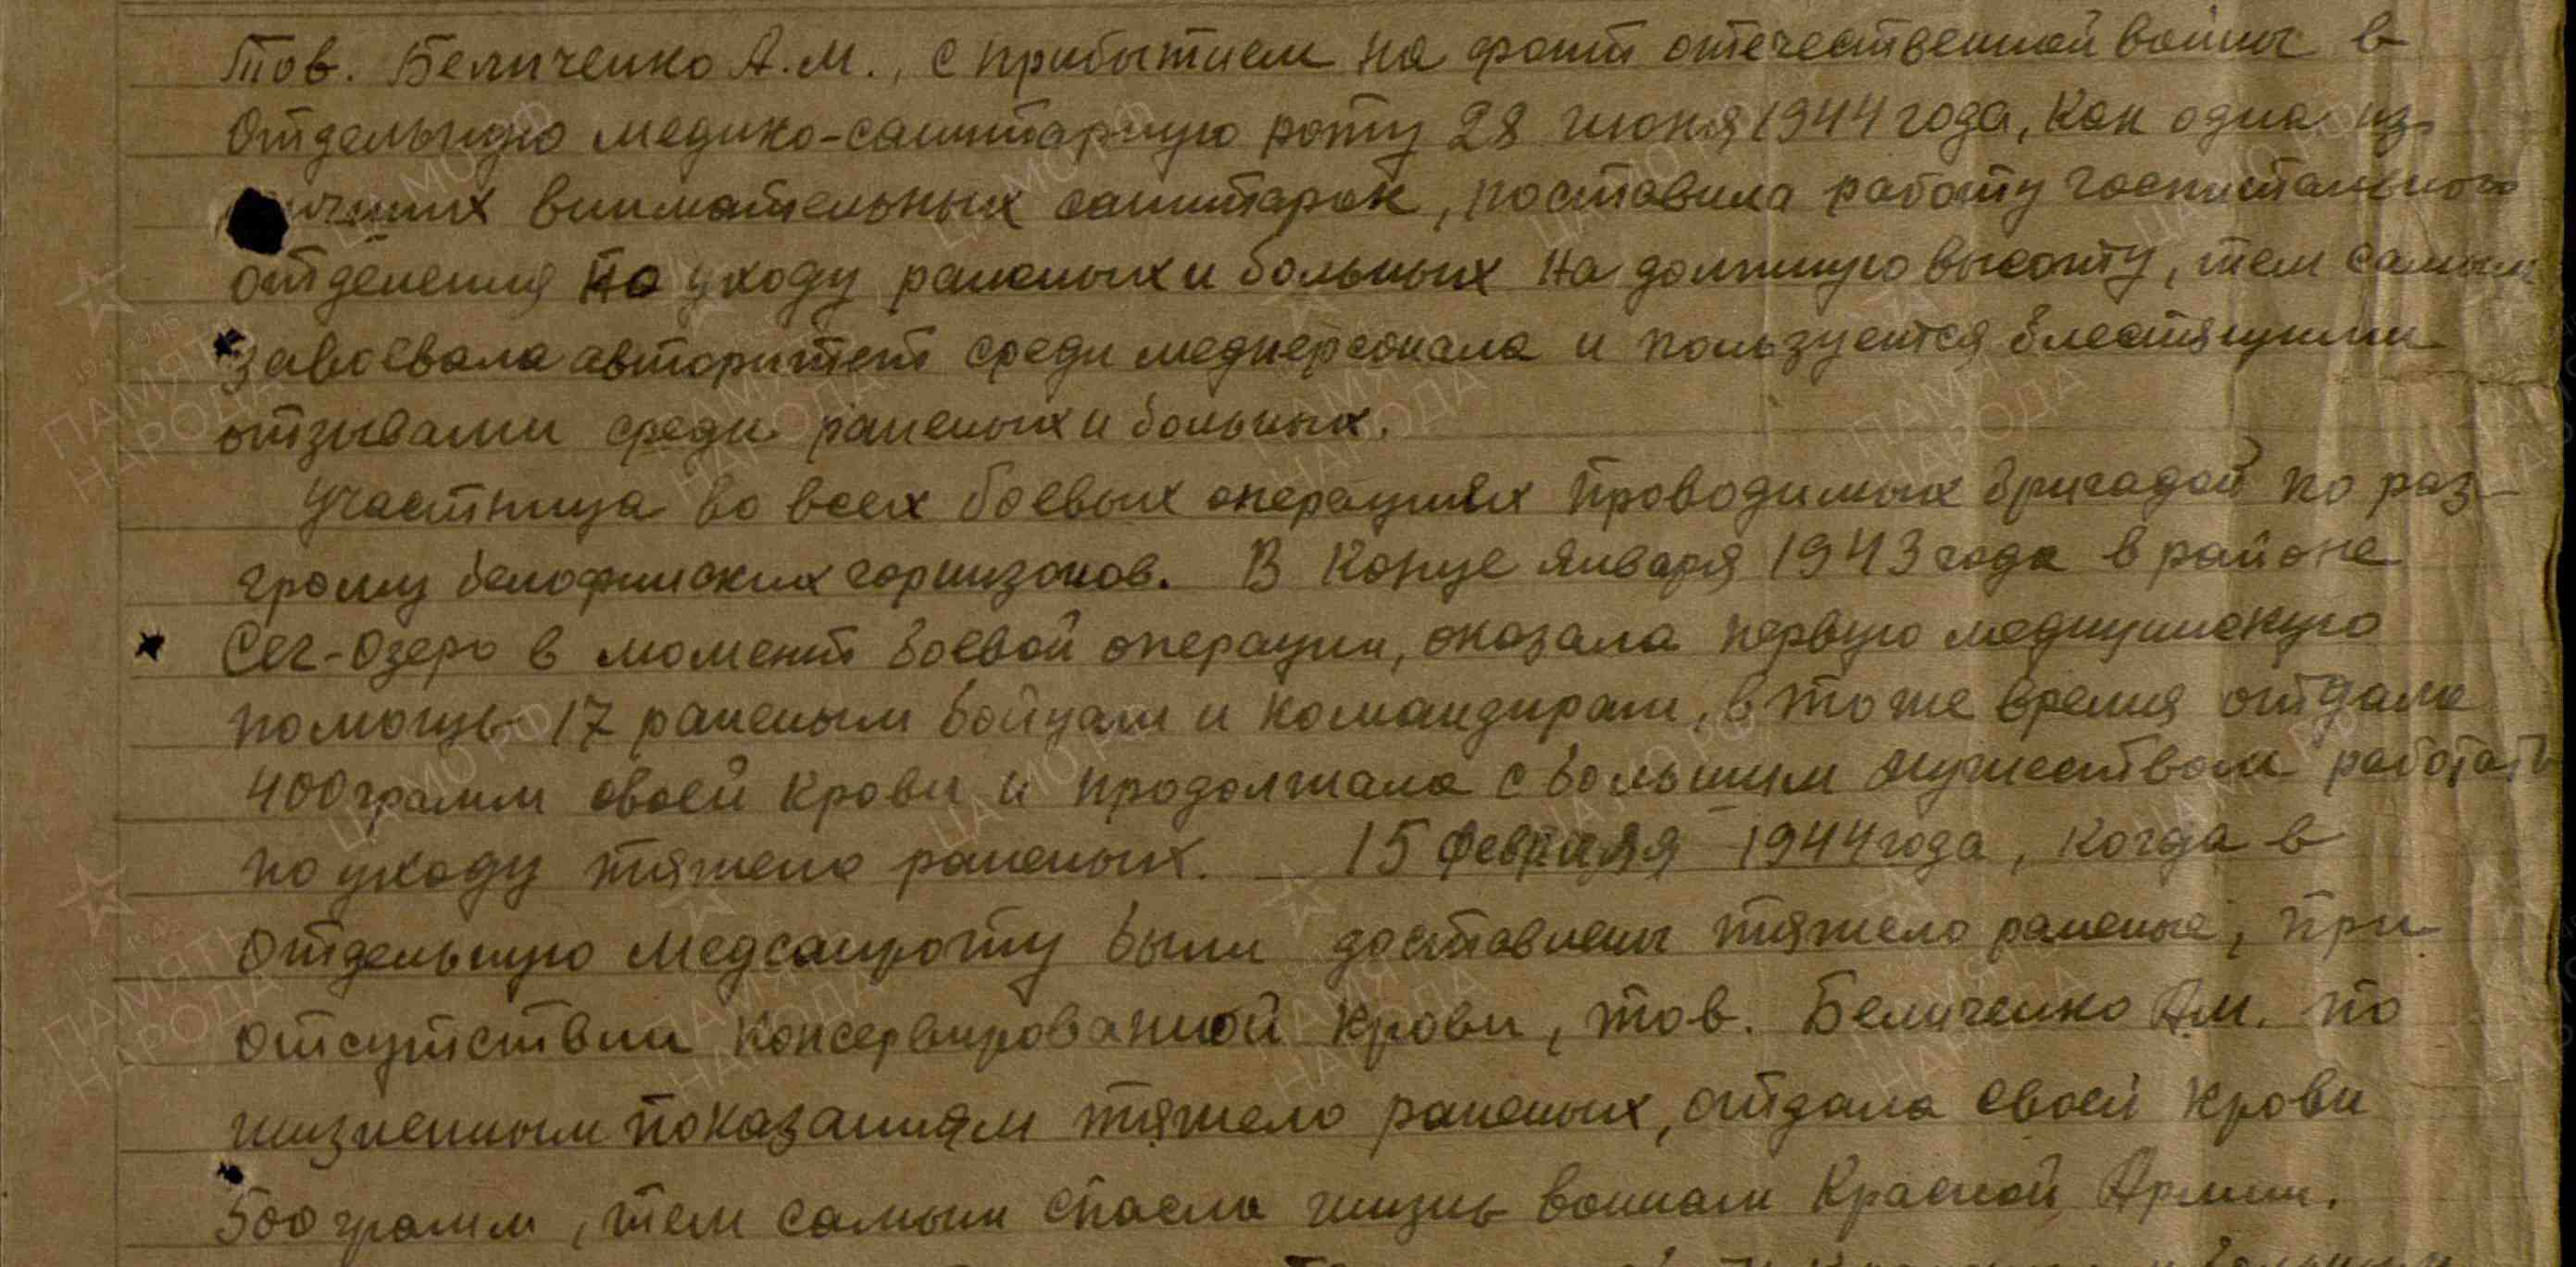 Тов. Беличенко А.М., с прибытием на фронт отечественной войны в
Отдельную медико-санитарную роту 28 июня 1944 года, как одна из
внимательных санитарок, поставила работу госпитального
отделения по уходу раненых и больных на должную высоту, тем самым
завоевала авторитет среди медперсонала и пользуется блестящими
отзывами среди раненых и больных.
Участница во всех боевых операциях проводимых бригадой по раз-
грому белофинских гарнизонов. В конце января 1943 года в районе
Сег-Озеро в момент боевой операции, оказала первую медицинскую
помощь 17 раненым бойцам и командирам, в тоже время отдала
400 грамм своей крови и продолжала с большим мужеством работать
по уходу тяжело раненых. 15 февраля 1944 года, когда в
Отдельную медсанроту были доставлены тяжело раненые, при
отсутствии консервированной крови, тов. Беличенко А.М. по
жизненным показаниям тяжело раненых, отдала своей крови
500 грамм, тем самым спасла жизнь воинам Красной Армии.
ЦАМО РФ
ПАМЯТЬ
НАРОДА